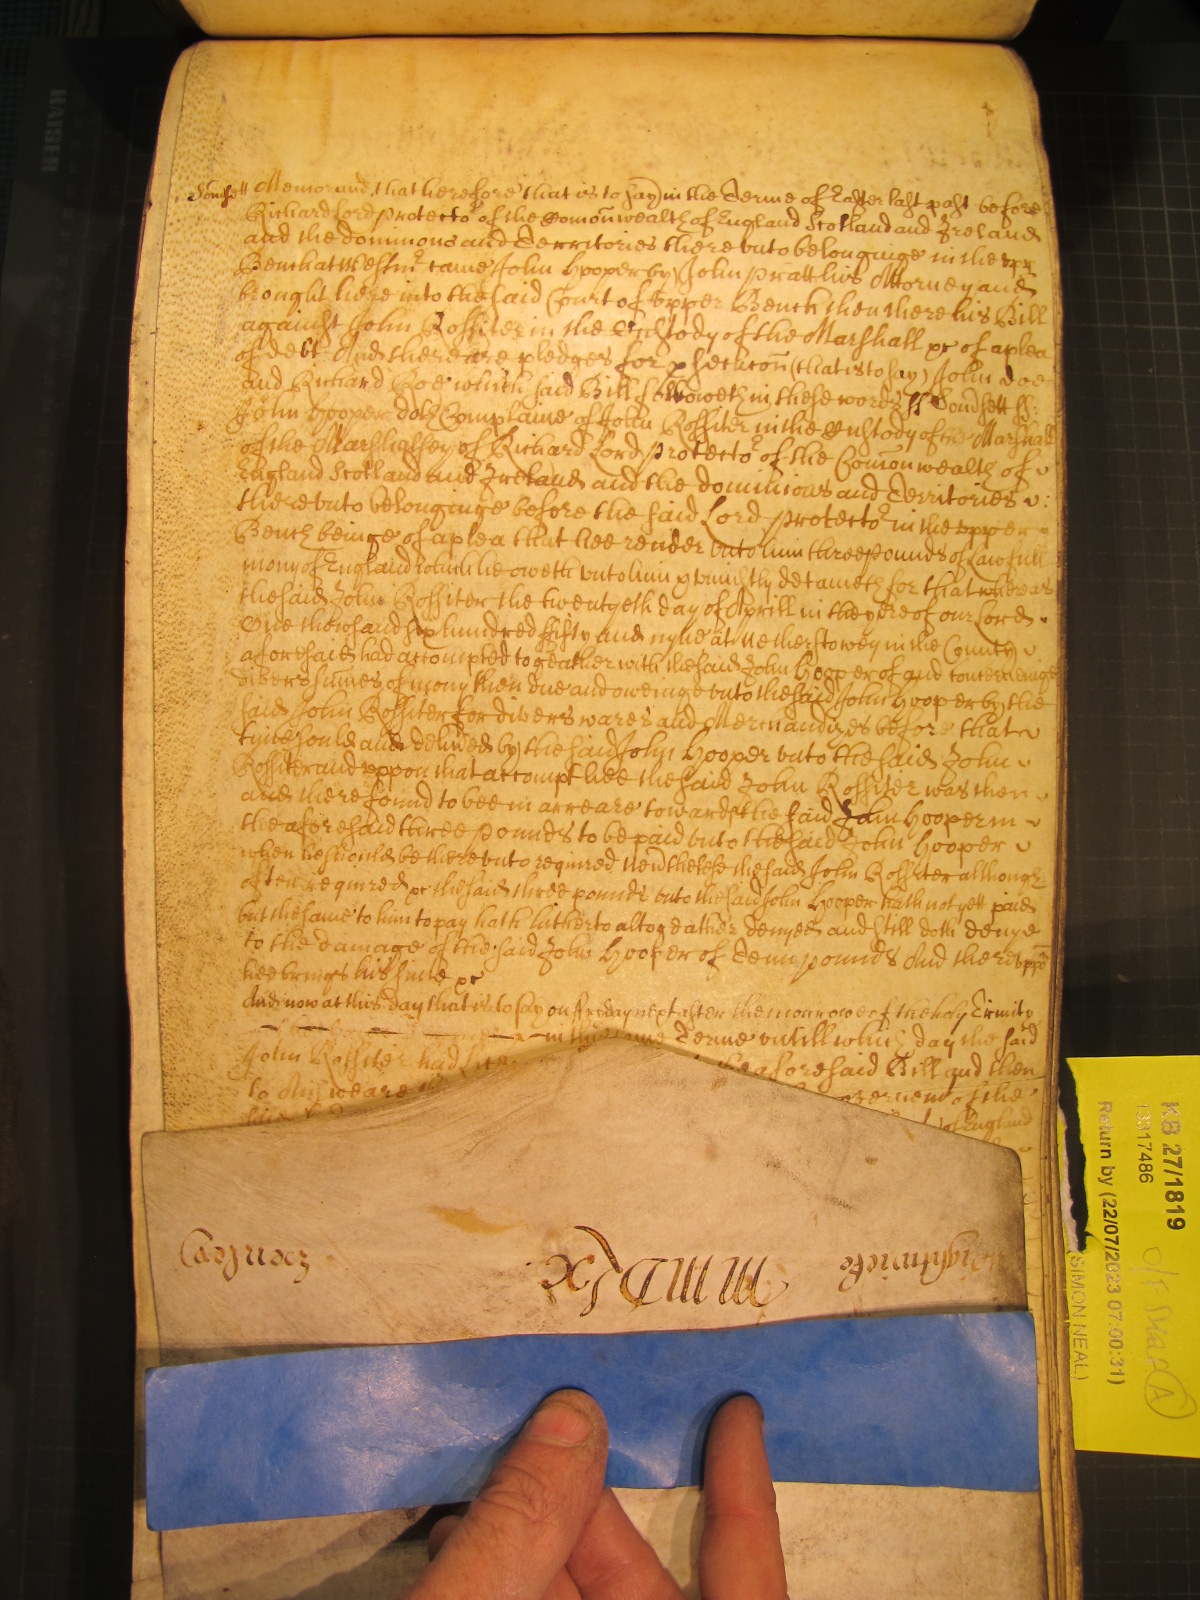 Somsett Memorand that heretofore that is to say in the Terme of Easter last past before
Richard Lord Protector of the Comonwealth of England Scotland and Ireland
and the dominions and Territories there vnto belonginge in the vpp
Bench at Westmr came John Hooper by John Pratt his Attorney and
brought here into the said Court of vpper Bench then there his Bill
against John Rossiter in the Custody of the Marshall &c of a plea
of debt And there are pledges for psecucon (that is to say) John doe
and Richard Roe which said Bill followeth in these words ss Somsett ss:
John Hooper doth Complaine of John Rossiter in the Custody of the Marshall
of the Marshalsey of Richard Lord Protector of the Comonwealth of
England Scotland and Ireland and the dominions and Territories
there vnto belonginge before the said Lord Protector in the vpper
Bench beinge of a plea that hee render vnto him three pounds of lawfull
mony of England which he oweth vnto him & vniustly detaineth for that whereas
the said John Rossiter the twentyeth day of Aprill in the yere of our Lord
One thowsand six hundred fifty and nyne at Netherstowey in the County
aforesaid had accompted togeather with the said John Hooper of and concerninge
divers sumes of mony then due and oweinge vnto the said John Hooper by the
said John Rossiter for divers wares and Merchandizes before that
tyme sould and deliued by the said John Hooper vnto the said John
Rossiter and vppon that accompt hee the said John Rossiter was then
and there found to bee in arreare towards the said John Hooper in
the aforesaid three pounds to be paid vnto the said John Hooper
when he should be there vnto required Neverthelesse the said John Rossiter although
often required &c the said three pounds vnto the said John Hooper hath not yett paid
but the same to him to pay hath hitherto altogeather denyed and still doth denye
to the damage of the said John Hooper of Tenn pounds And therevppon
hee brings his suite &c
And now at this day that is to say on Fryday next after the morrowe of the holy Trinity
in this same Terme vntill which day the said
John Rossiter had the aforesaid Bill and then
to Answeare of the
of England
Wightwicke MMDlxx
KAISER
KB 27/1819
13317486
Return by (22/07/2023 07:00:31)
(SIMON NEAL)
A